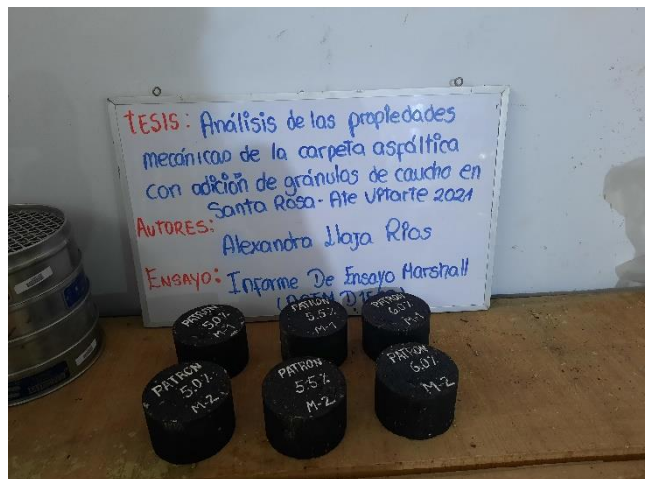 TESIS: Análisis de las propiedades
mecánicas de la carpeta asfáltica
con adición de gránulos de caucho en
Santa Rosa - Ate Vitarte 2021
AUTORES:
Alexandra Llaja Rios
ENSAYO: Informe De Ensayo Marshall
PATRON
5.0%
M-1
PATRON
5.5%
M-1
PATRON
6.0%
M-1
PATRON
5.0%
M-2
PATRON
5.5%
M-2
PATRON
6.0%
M-2